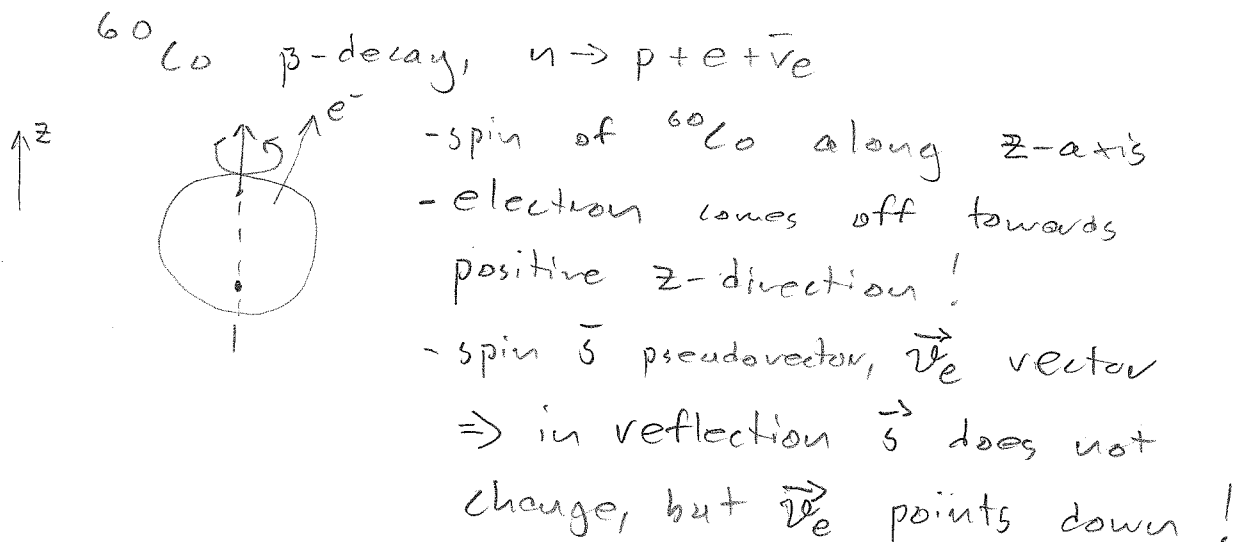 ⁶⁰Co β-decay, n → p + e + ν̄e
z
e⁻
- spin of ⁶⁰Co along z-axis
- electron comes off towards
positive z-direction!
- spin s̄ pseudovector, v⃗e vector
⇒ in reflection s⃗ does not
change, but v⃗e points down!